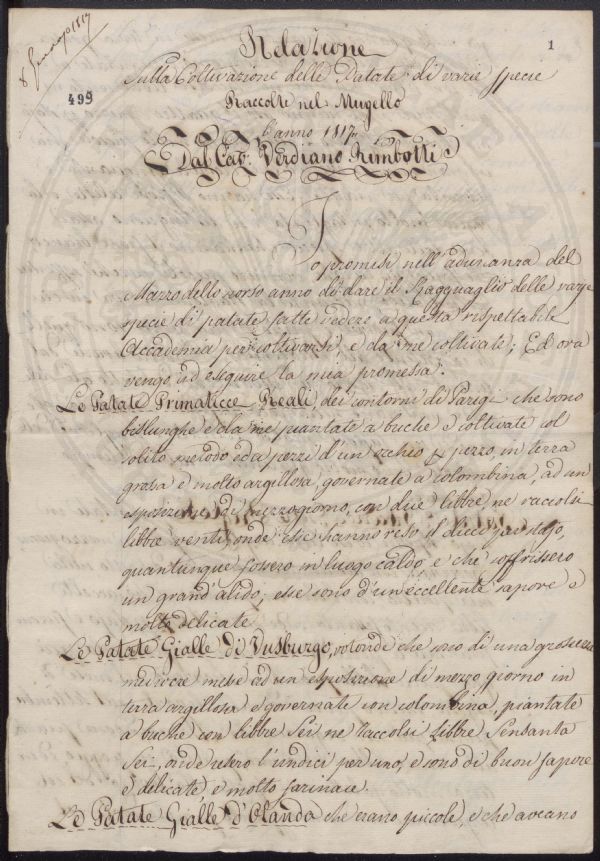 8 Gennajo 1819
1
499
Relazione
Sulla Coltivazione delle Patate di varie specie
Raccolte nel Mugello
l'anno 1817
Dal Cav: Verdiano Rimbotti
Io promisi nell'adunanza del
Marzo dello scorso anno di dare il Ragguaglio delle varie
specie di patate fatte vedere a questa rispettabile
Accademia per coltivarsi, e da me coltivate; Ed ora
vengo ad eseguire la mia promessa.
Le Patate Primaticce Reali, dei contorni di Parigi che sono
bislunghe e da me piantate a buche e coltivate col
solito metodo ed a pezzi d'un occhio p pezzo in terra
grossa e molto argillosa, governate a colombina, ad un
esposizione di mezzogiorno, con due libbre ne raccolsi
libbre venti, onde che hanno reso il dieci per staio,
quantunque fossero in luogo caldo e che soffrissero
un grand'alido; esse sono d'un eccellente sapore e
molto delicate
Le Patate Gialle di Dusburgo, rotonde che sono di una grossezza
mediocre messe ad un esposizione di mezzo giorno in
terra argillosa e governate con colombina, piantate
a buche con libbre Sei ne raccolsi Libbre Sensanta
Sei, onde resero l'undici per uno, e sono di buon sapore
e delicate e molto farinacee.
Le Patate Gialle d'Olanda che erano piccole, e che aveano